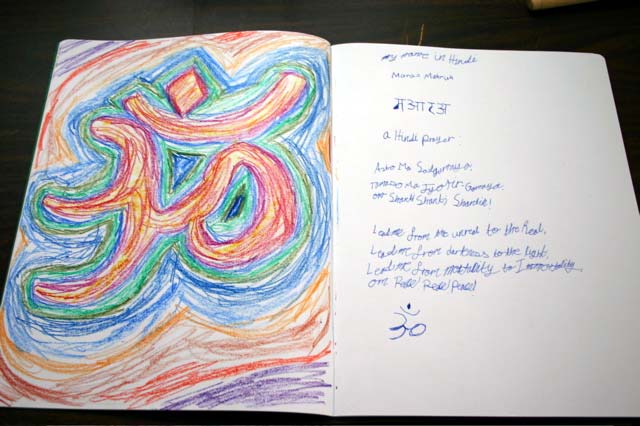 my name in Hindi
मआरअ
a Hindi prayer:
Asato Ma Sadgamaya.
Tamaso Ma Jyotir-Gamaya.
om Shanti Shanti Shantih!
Lead me from the unreal to the Real,
Lead me from darkness to the Light,
Lead me from mortality to Immortality
om Peace Peace Peace!
ॐ